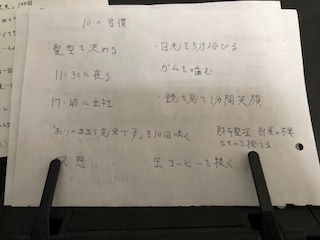 10の習慣
髪型を決める
・日光を5分浴びる
11:30に寝る
ガムを噛む
に出社
・鏡を見て1分間笑顔
「ありのままで完璧です」を10回呟く
財布整理、部屋の不要
なものを捨てる
瞑想
コーヒーを挽く